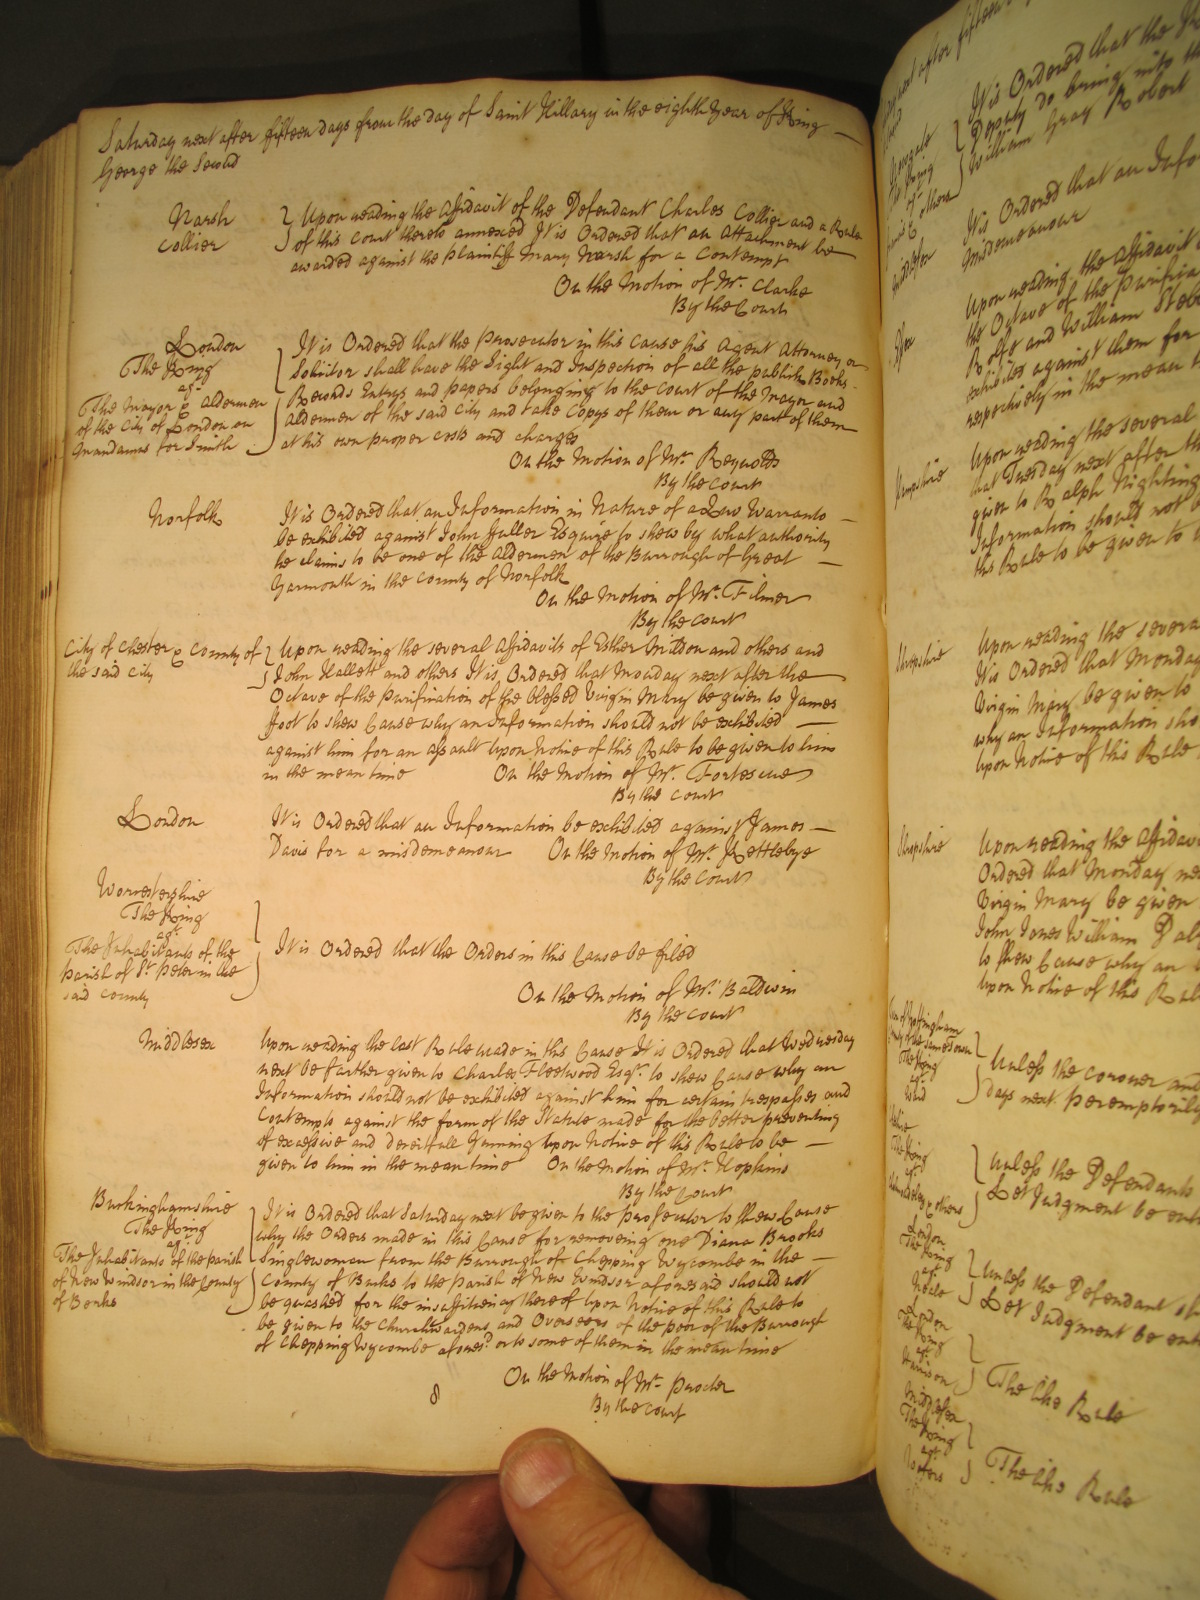 Saturday next after fifteen days from the day of Saint Hillary in the eighth year of King
George the Second
Marsh
Collier
Upon reading the Affidavit of the Defendant Charles Collier and a Rule
of this Court thereto annexed It is Ordered that an Attachment be
awarded against the plaintiff Mary Marsh for a Contempt
On the Motion of Mr. Clarke
By the Court
London
The King
agt.
The Mayor & Aldermen
of the City of London on
Mandamus for Smith
It is Ordered that the Prosecutor in this Cause his Agent Attorney or
Solicitor shall have the Sight and Inspection of all the publick Books
Records Entrys and papers belonging to the Court of the Mayor and
Aldermen of the said City and take Copys of them or any part of them
at his own proper costs and charges
On the Motion of Mr. Reynolds
By the Court
Norfolk
It is Ordered that an Information in Nature of a Quo Warranto
be exhibited against John Fuller Esquire to shew by what authority
he claims to be one of the Aldermen of the Burrough of Great
Yarmouth in the County of Norfolk
On the Motion of Mr. Filmer
By the Court
City of Chester & County of
the said City
Upon reading the several Affidavits of Esther and others and
John Hallett and others It is Ordered that Monday next after the
Octave of the Purification of the blessed Virgin Mary be given to James
Foot to shew Cause why an Information should not be exhibited
against him for an assault upon Notice of this Rule to be given to him
in the mean time
On the Motion of Mr. Fortescue
By the Court
London
It is Ordered that an Information be exhibited against James
Davis for a misdemeanour
On the Motion of Mr. Kettlebye
By the Court
Worcestershire
The King
agt.
The Inhabitants of the
parish of St. Peter in the
said County
It is Ordered that the Orders in this Cause be filed
On the Motion of Mr. Baldwin
By the Court
Middlesex
Upon reading the last Rule made in this Cause It is Ordered that Wednesday
next be farther given to Charles Fleetwood Esqr. to shew Cause why an
Information should not be exhibited against him for certain trespasses and
Contempts against the form of the Statute made for the better preventing
of excessive and deceitfull Gaming upon Notice of this Rule to be
given to him in the mean time
On the Motion of Mr. Hopkins
By the Court
Buckinghamshire
The King
agt.
The Inhabitants of the parish
of New Windsor in the County
of Berks
It is Ordered that Saturday next be given to the prosecutor to shew Cause
why the Orders made in this Cause for removeing one Diana Brooks
Singlewoman from the Burrough of Chepping Wycombe in the
County of Bucks to the parish of New Windsor aforesaid should not
be quashed for the insufficiency thereof upon Notice of this Rule to
be given to the Churchwardens and Overseers of the poor of the Burrough
of Chepping Wycombe aforesd. or to some of them in the mean time
On the Motion of Mr. Procter
By the Court
8
It is Ordered that the
Deputy do bring into the
William Gray Robert
others
It is Ordered that an Infor
Misdemeanour
Upon reading the Affidavit
the Octave of the Purifica
Rolfe and William
exhibited against them for
respectively in the mean
Upon reading the several
that Tuesday next after the
given to Ralph Nighting
Information should not b
this Rule to be given to
Shropshire
Upon reading the severa
It is Ordered that Monday
Virgin Mary be given to
why an Information sho
upon Notice of this Rule
Shropshire
Upon reading the Affidav
Ordered that Monday ne
Virgin Mary be given
John Jones William
to shew Cause why an
upon Notice of this Rul
The King
agt.
Unless the Coroner
days next peremptorily
The King
agt.
& others
Unless the Defendants
Let Judgment be ent
London
The King
agt.
Neale
Unless the Defendant sh
Let Judgment be ent
London
The King
agt.
Harrison
The like Rule
Middlesex
The King
agt.
The like Rule